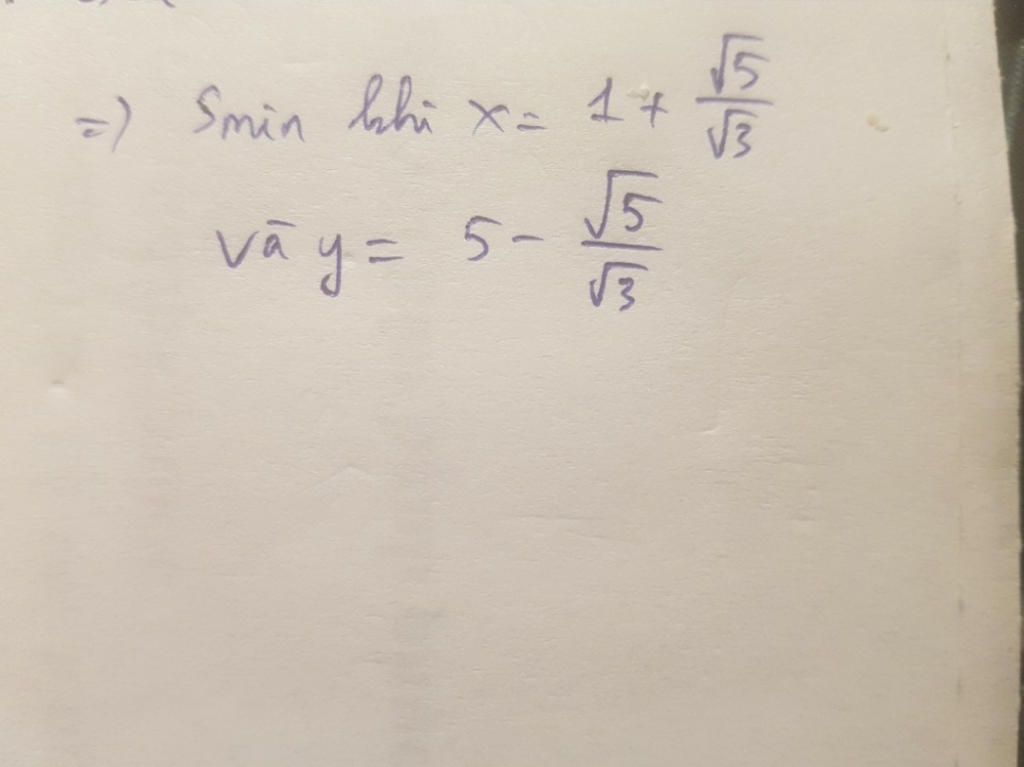 => Smin khi x = 1 + √5/√3
và y = 5 - √5/√3